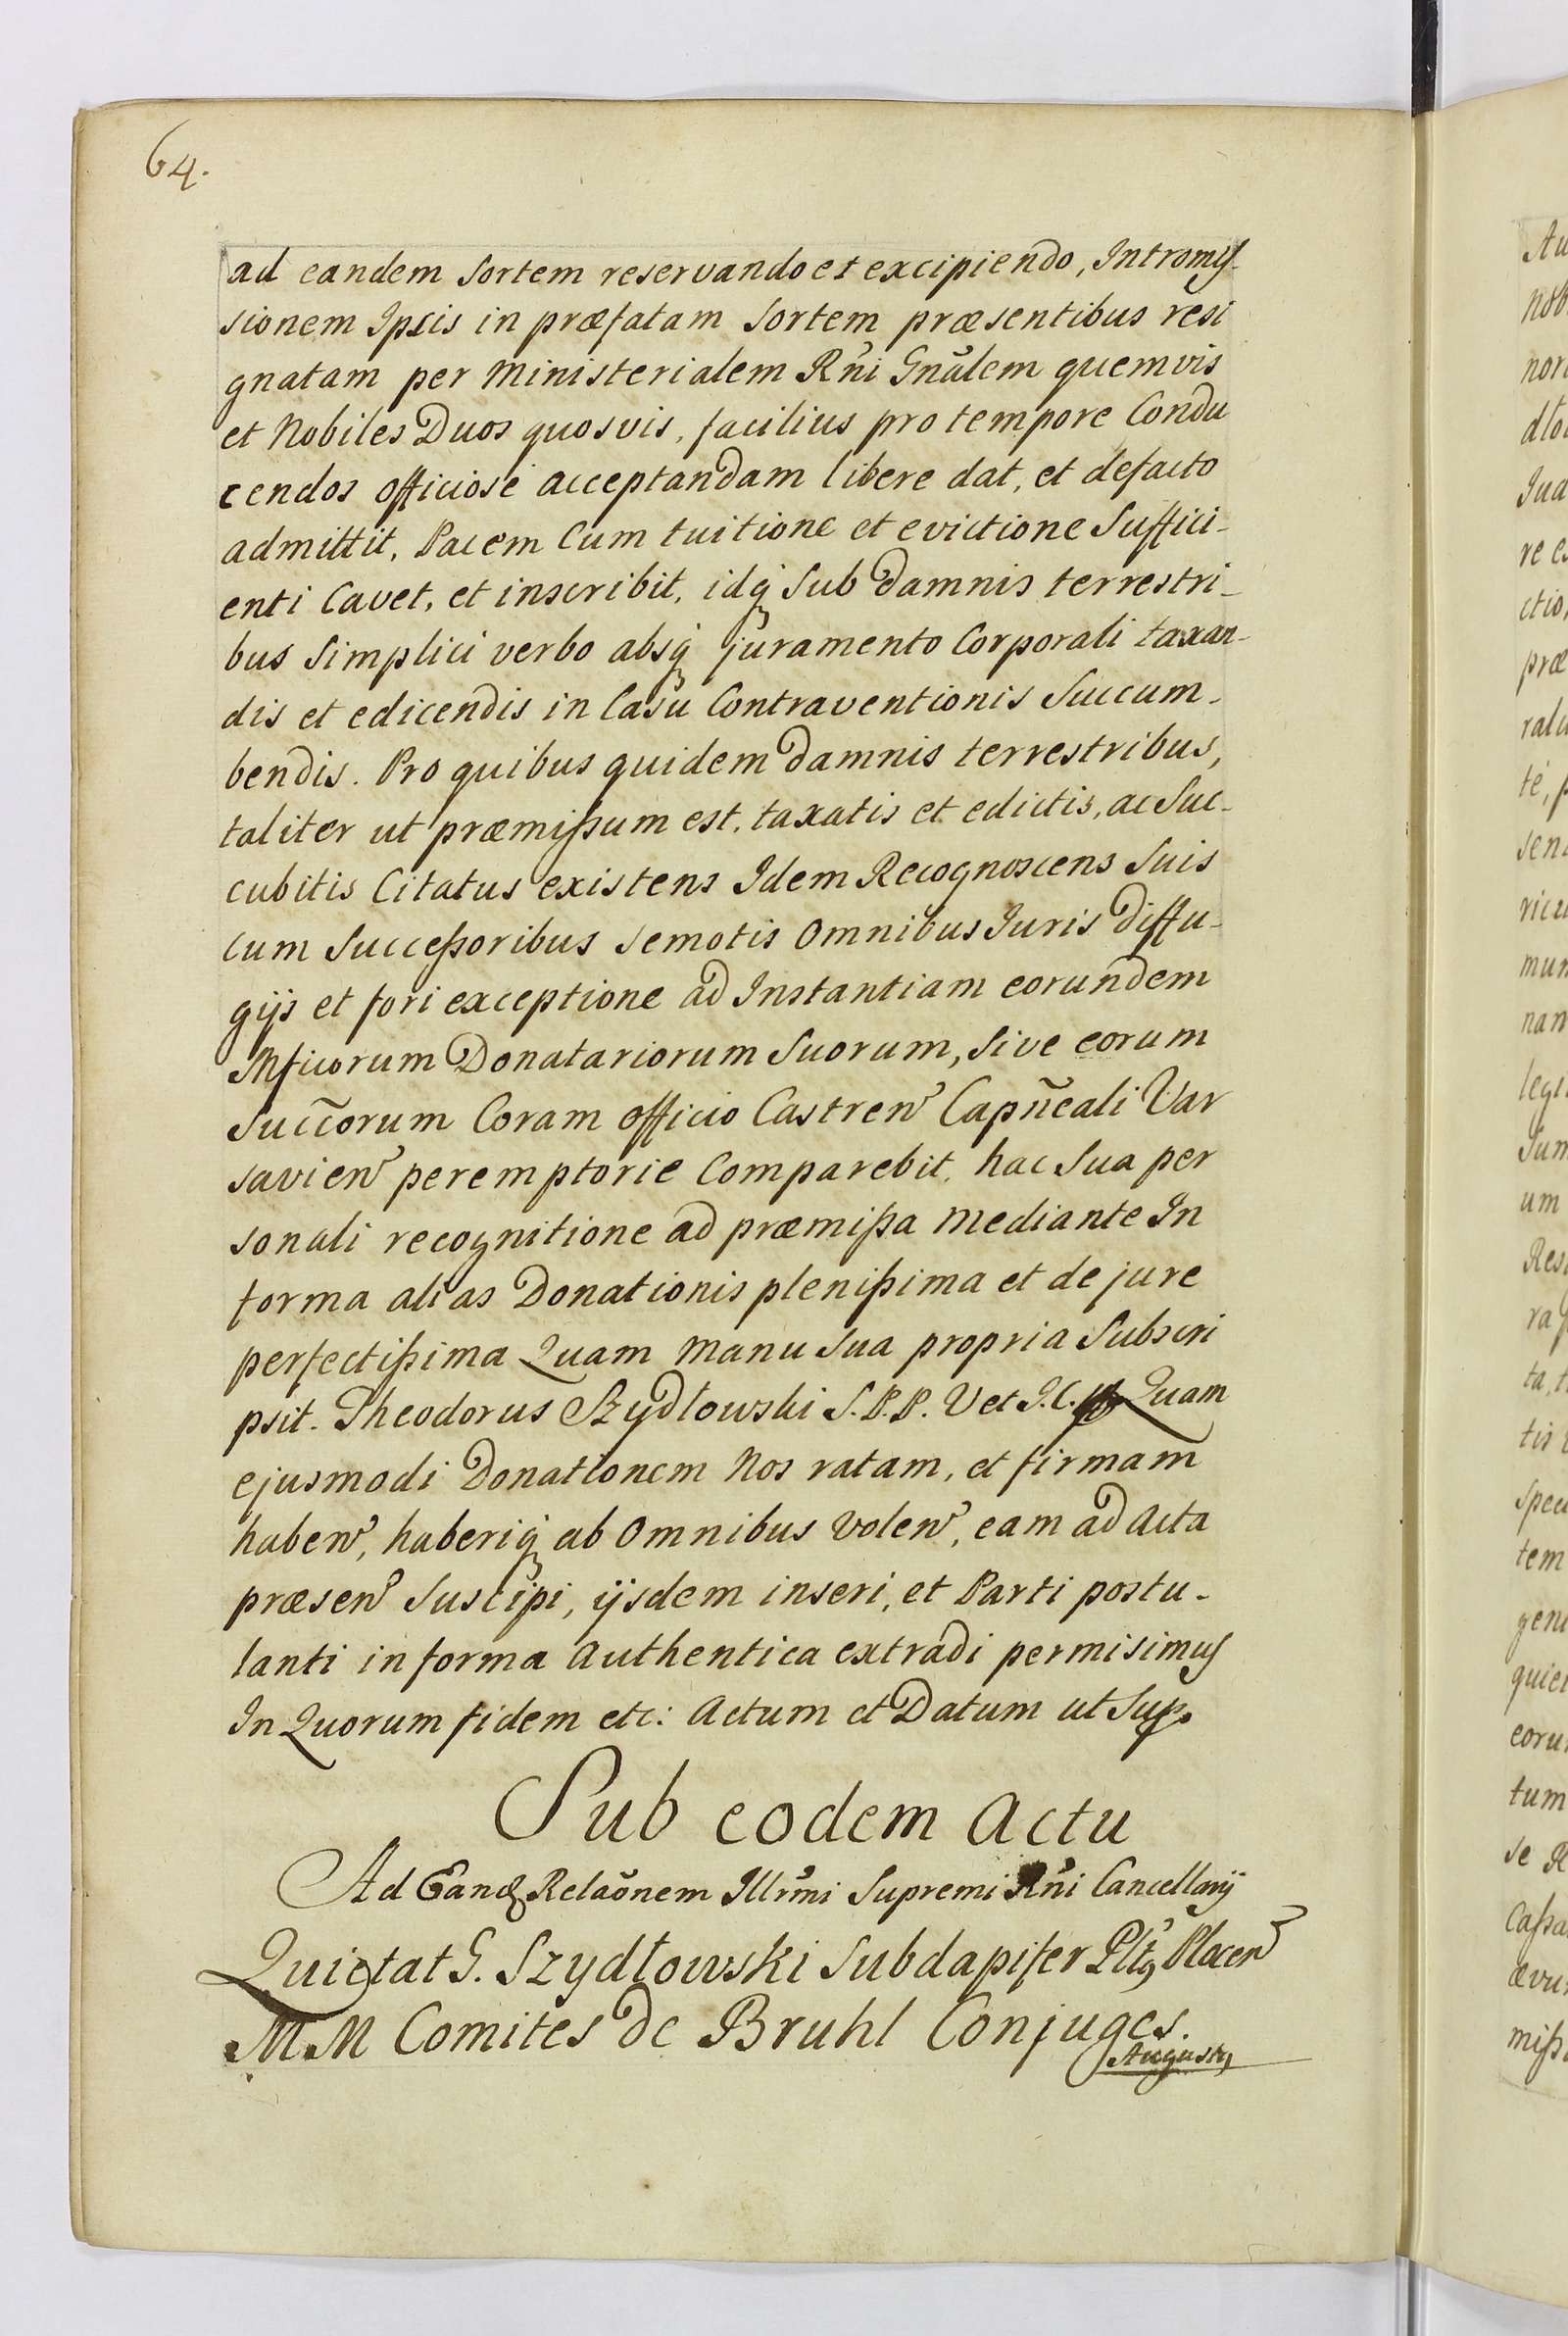 64.
ad eandem Sortem reservando et excipiendo, Intromis-
sionem Ipsis in præfatam Sortem præsentibus resi
gnatam per Ministerialem Rñi Gnãlem quemvis
et Nobiles Duos quosvis, facilius pro tempore Condu
cendos officiosé acceptandam libere dat, et defacto
admittit, Pacem Cum tuitione et evictione Suffici-
enti Cavet, et inscribit, idq; Sub Damnis terrestri-
bus Simplici verbo absq; juramento Corporali taxan-
dis et edicendis in Casu Contraventionis Succum-
bendis. Pro quibus quidem Damnis terrestribus,
taliter ut præmissum est, taxatis et edictis, ac Suc-
cubitis Citatus existens Idem Recognoscens Suis
cum Successoribus Semotis Omnibus Iuris diffu-
gijs et fori exceptione ad Instantiam eorundem
Mficorum Donatariorum Suorum, Sive eorum
Succorum Coram Officio Castren Capñeali Var
savien peremptorie Comparebit, hac Sua per
sonali recognitione ad præmissa mediante In
forma alias Donationis plenissima et de jure
perfectissima Quam Manu Sua propria Subscri
psit. Theodorus Szydłowski S.P.P. V et I.C. Quam
ejusmodi Donationem Nos ratam, et firmam
haben, haberiq; ab Omnibus Volen, eam ad Acta
præsen Suscipi, ijsdem inseri, et Parti postu-
lanti in forma Authentica extradi permisimus
In Quorum fidem etc: Actum et Datum ut Sup.
Sub eodem Actu
Ad Eand Relaõnem Illrmi Supremi Rñi Cancellarij
Quietat G. Szydłowski Subdapifer Pltus Placen
M.M Comites de Bruhl Conjuges.
Augustus